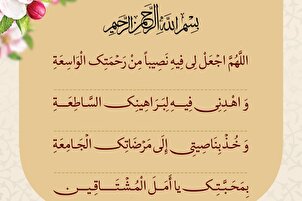 بِسْمِ اللَّهِ الرَّحْمَنِ الرَّحِيمِ
اللَّهُمَّ اجْعَلْ لِی فِیهِ نَصِیباً مِنْ رَحْمَتِک الْوَاسِعَةِ
وَ اهْدِنِی فِیهِ لِبَرَاهِینِک السَّاطِعَةِ
وَ خُذْ بِنَاصِیتِی إِلَى مَرْضَاتِک الْجَامِعَةِ
بِمَحَبَّتِک یا أَمَلَ الْمُشْتَاقِینَ